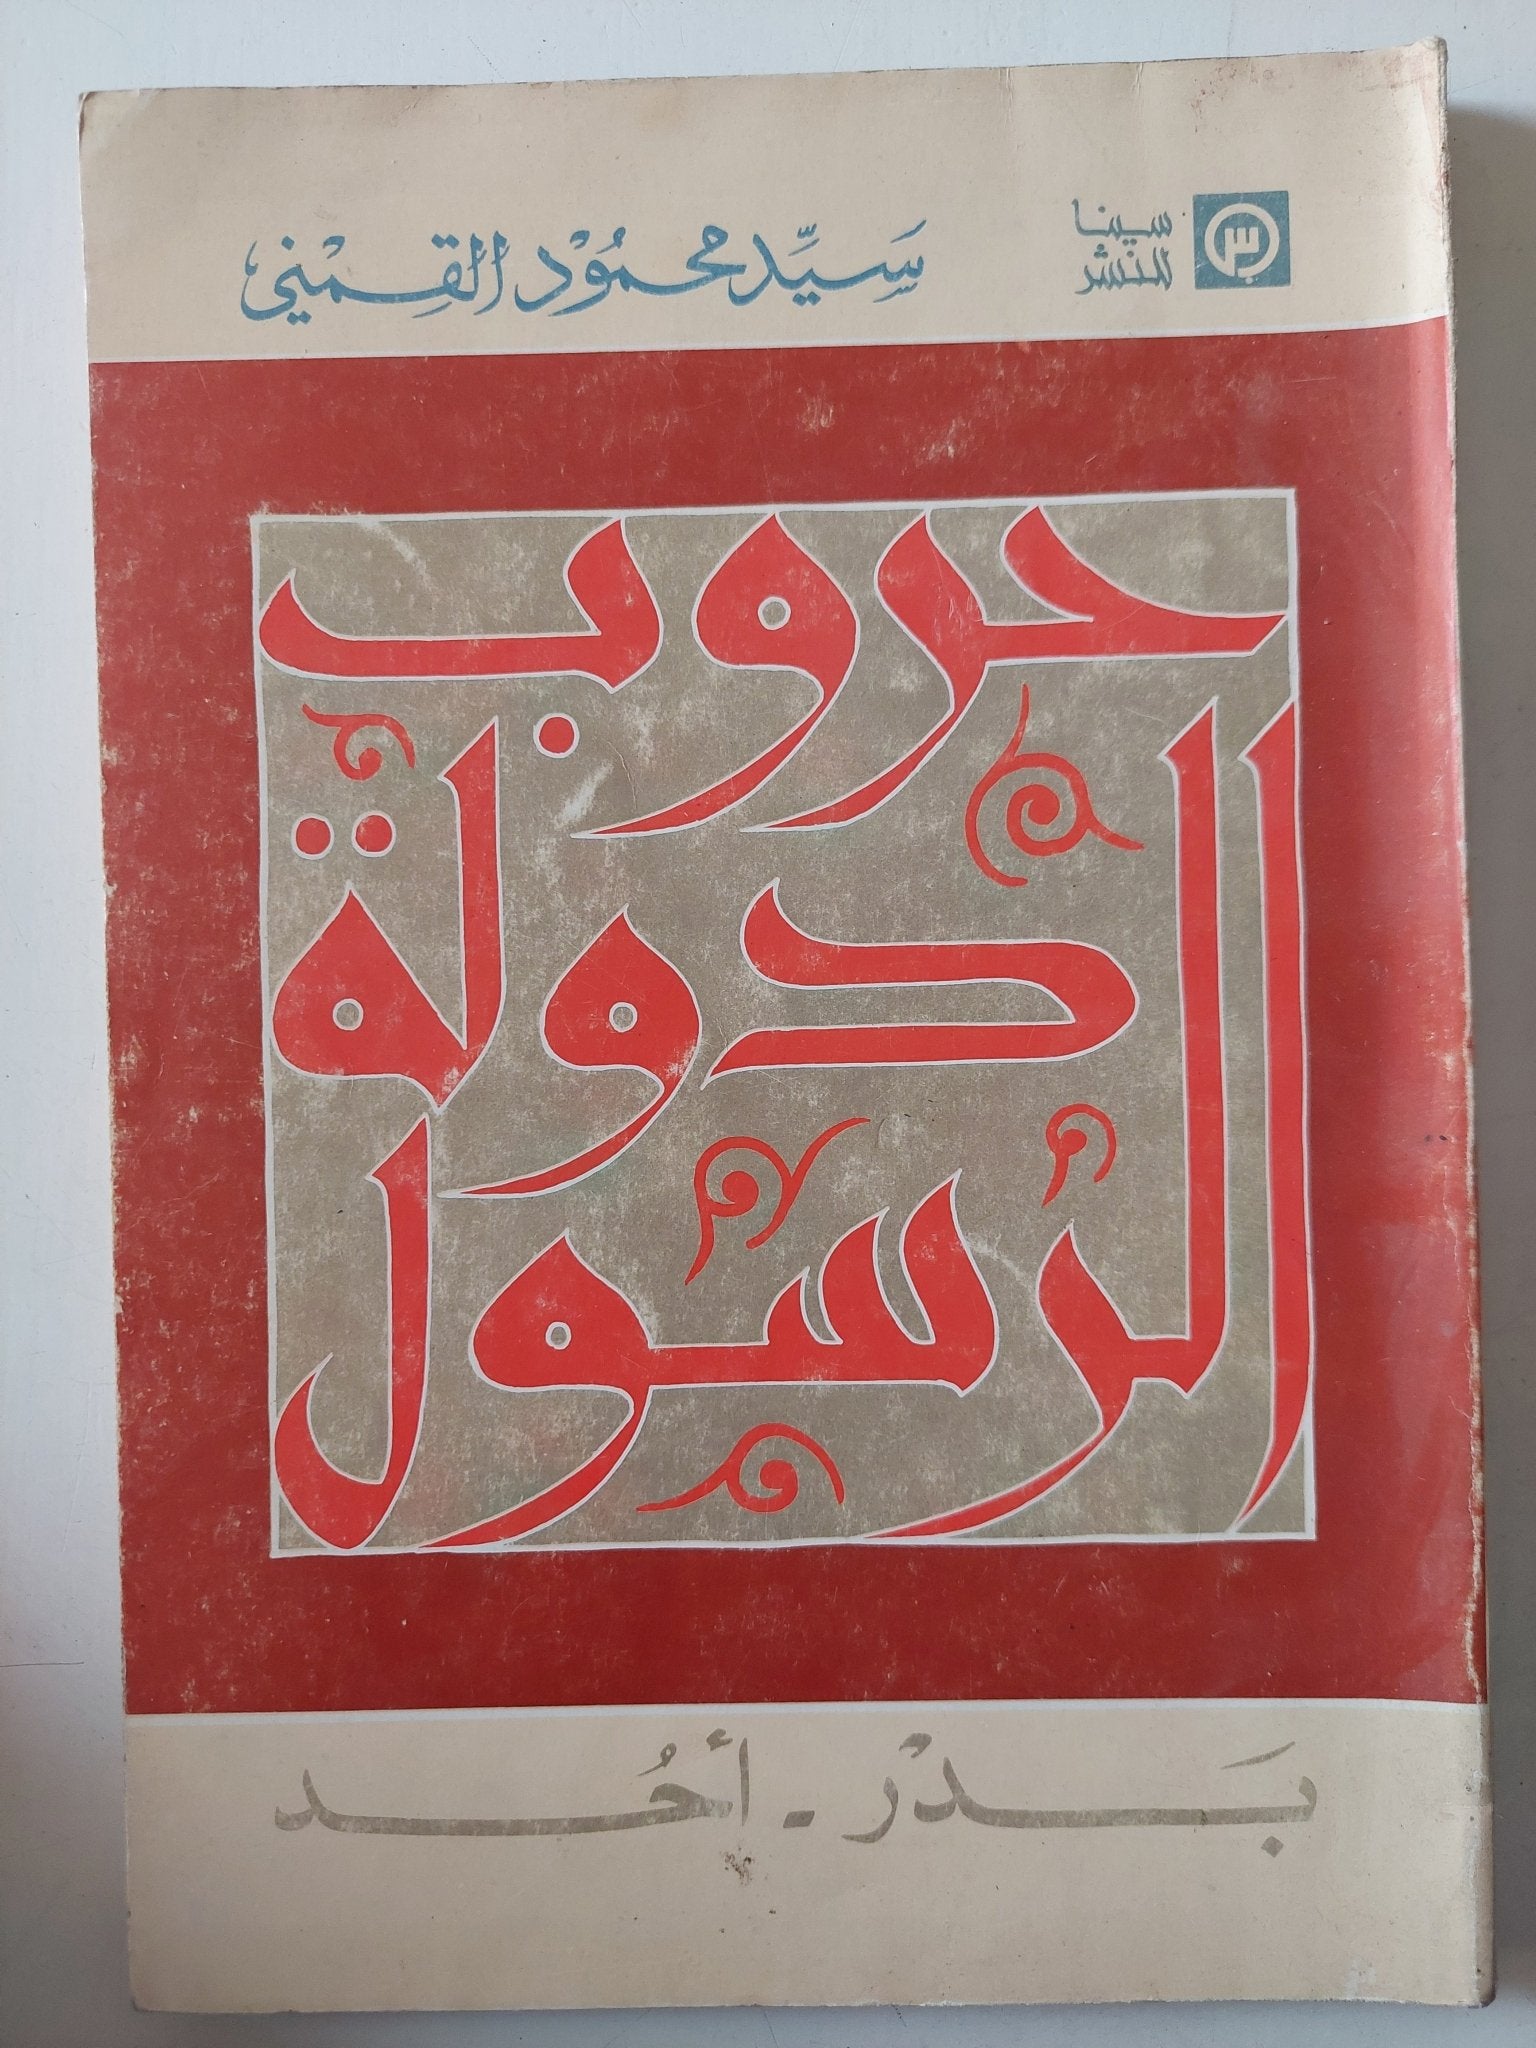 سينا
للنشر
سَيِّد محمُوْد القِمْني
حروب
دولة
الرسُول
بَدْر - أحُد